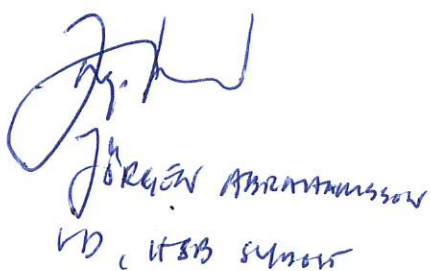 JÖRGEN ABRAHAMSSON
VD, HSB SYDOST